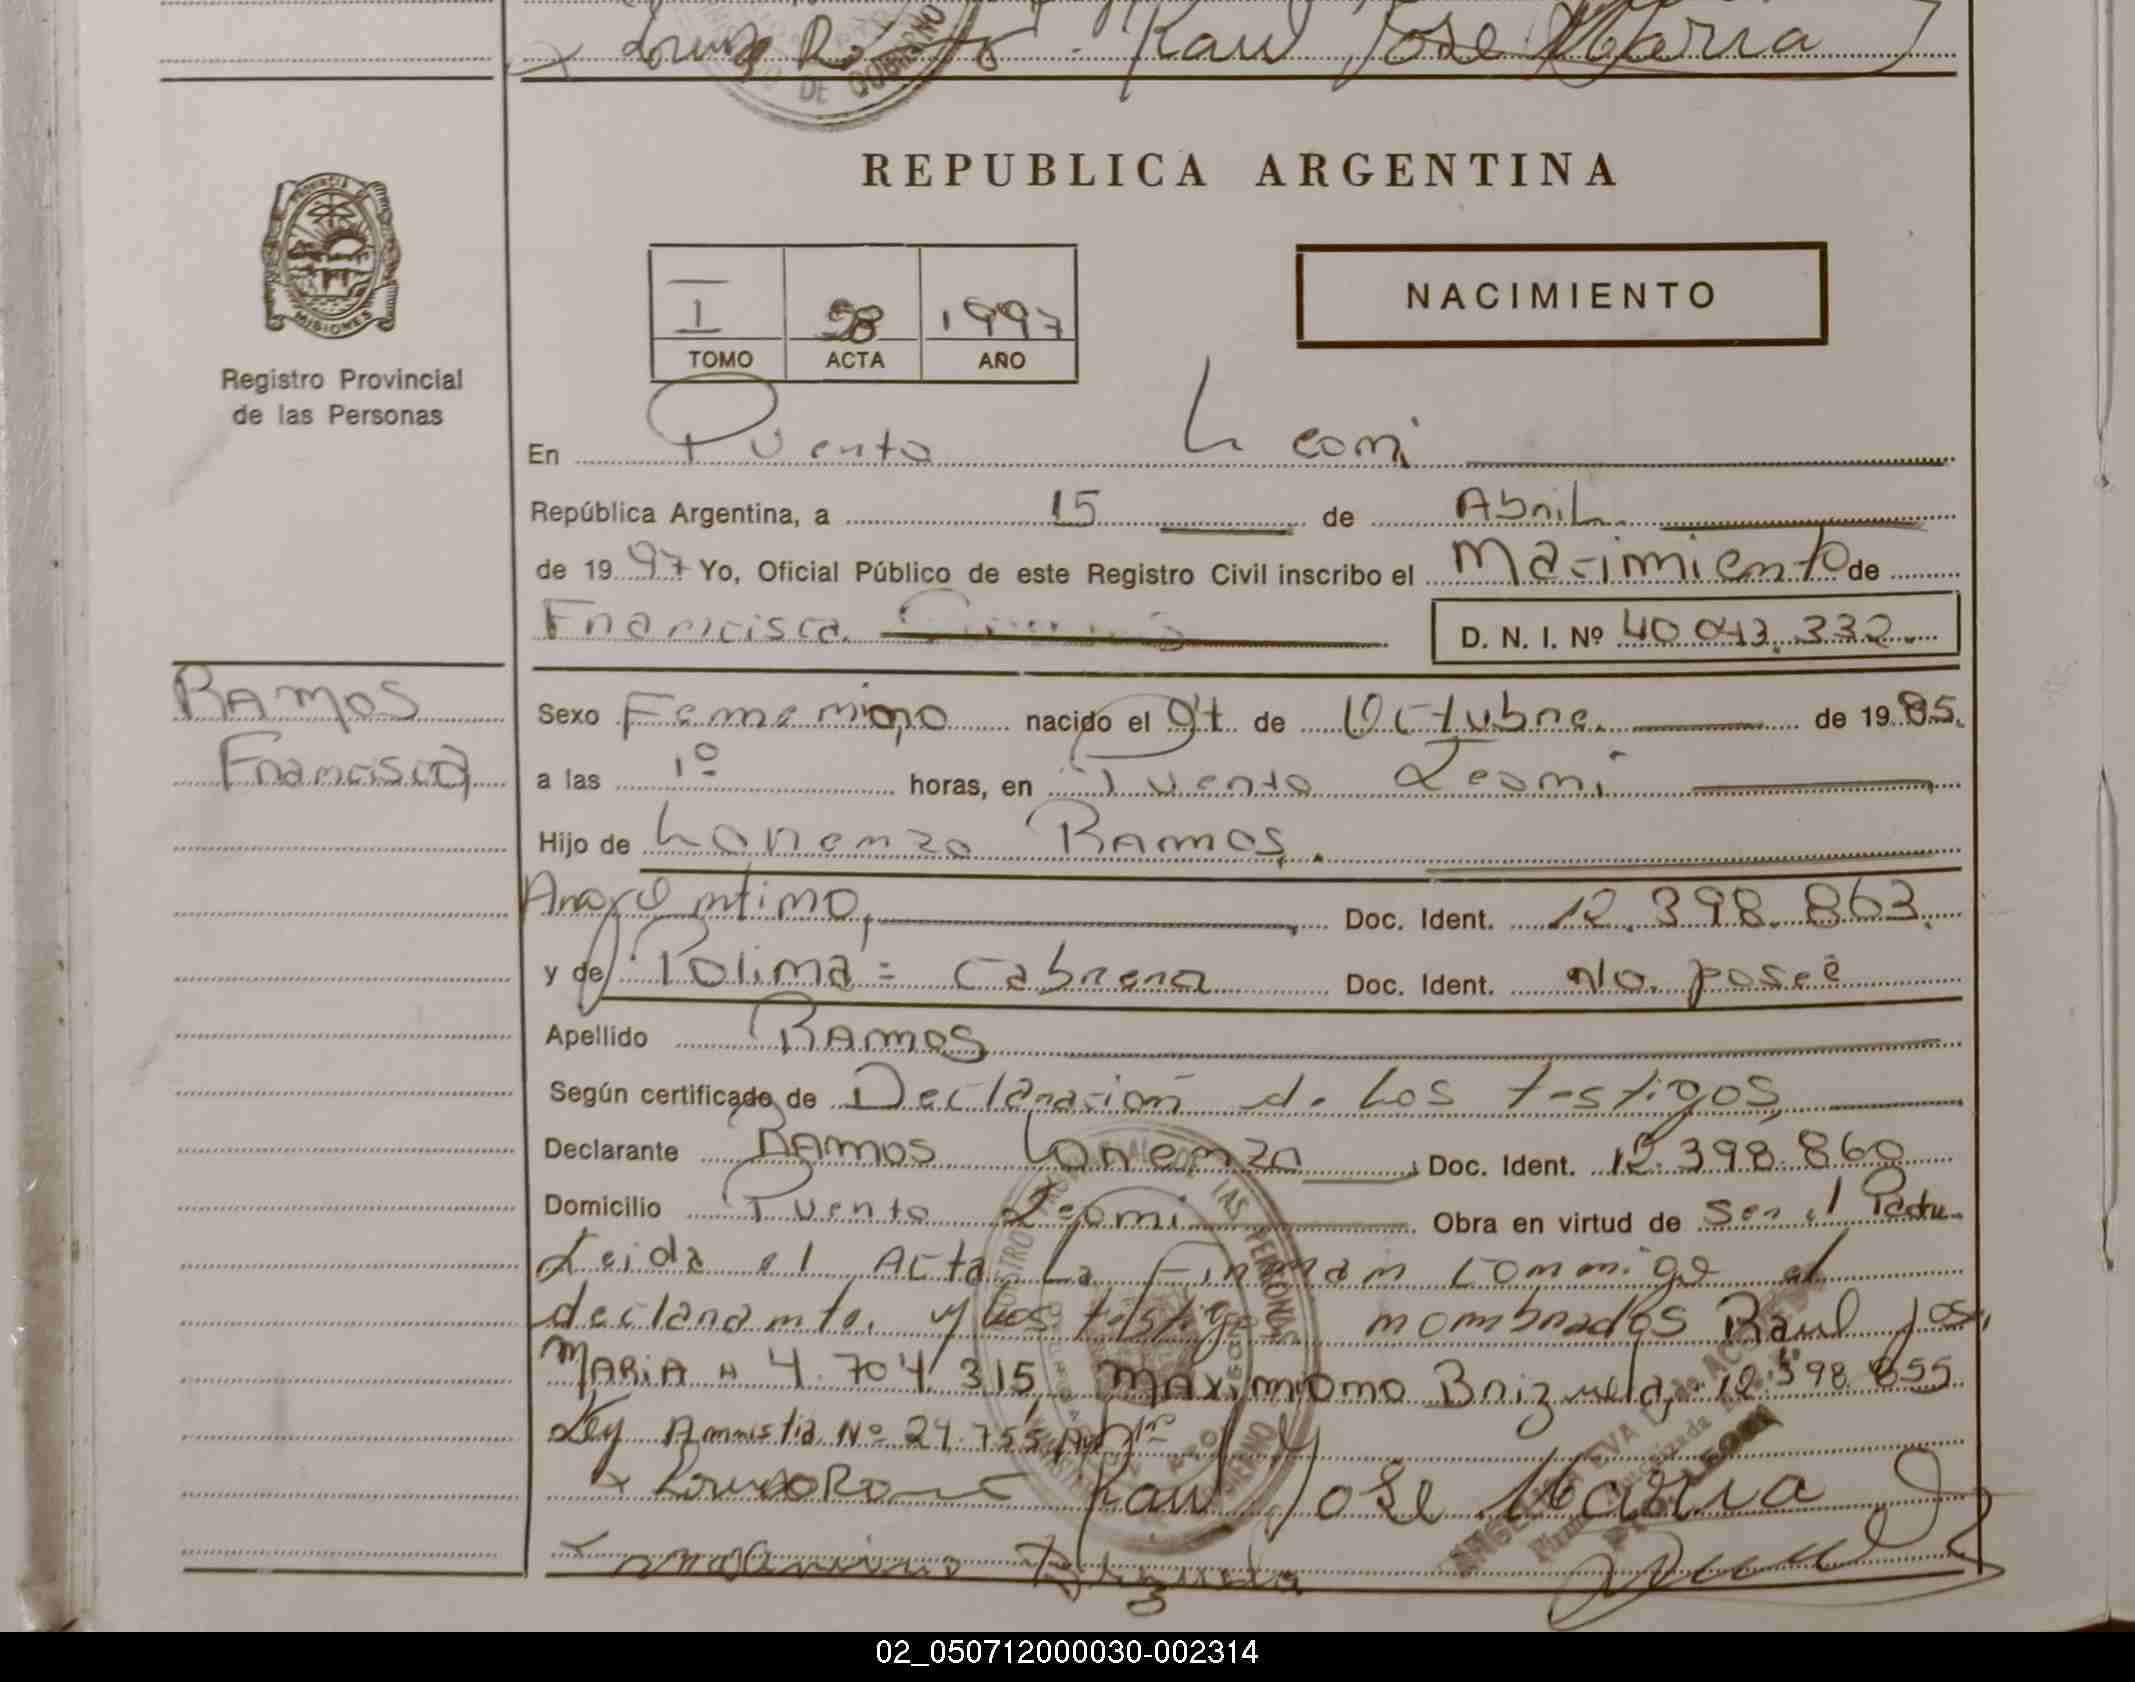 Raul José Maria
DE GOBIERNO
REPUBLICA ARGENTINA
PROVINCIA DE
MISIONES
Registro Provincial
de las Personas
I 28 1997
TOMO ACTA AÑO
NACIMIENTO
En Puerto Leoni
República Argentina, a 15 de Abril
de 1997 Yo, Oficial Público de este Registro Civil inscribo el Nacimiento de
Francisca D. N. I. Nº 40.043.332
RAMOS
Francisca
Sexo Femenino nacido el 04 de Octubre de 1985.
a las 1º horas, en Puerto Leoni
Hijo de Lorenzo RAMOS.
Argentino, Doc. Ident. 12.398.863.
y de Polima = Cabrera Doc. Ident. No posee
Apellido RAMOS
Según certificado de Declaración de Los testigos,
Declarante RAMOS Lorenzo Doc. Ident. 12.398.860
Domicilio Puerto Leoni Obra en virtud de Ser el Padre
Leida el Acta La Firman conmigo el
declarante, y Los testigos nombrados Raul José,
MARIA 4.704.315, MAXIMIANO Brizuela, 12.398.855
Ley Amnistia Nº 24.755
Raul José Maria
Brizuela
02_050712000030-002314